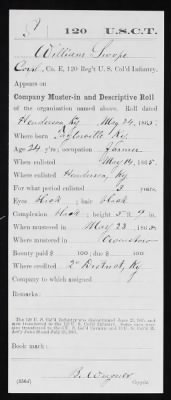 120 U.S.C.T.
William
Co. E, 120 Reg't U. S. Col'd Infantry.
Appears on
Company Muster-in and Descriptive Roll
of the organization named above. Roll dated
Henderson, Ky May 24, 1865.
Where born Taylorsville Ky.
Age 24 y'rs; occupation Farmer
When enlisted May 14, 1865.
Where enlisted Henderson, Ky
For what period enlisted 3 years.
Eyes Black; hair black
Complexion Black; height 5 ft. 7 in.
When mustered in May 23, 1865
Where mustered in Owensboro
Bounty paid $ 100; due $ 100
Where credited 2d District, Ky
Company to which assigned
Remarks:
Book mark:
Copyist.